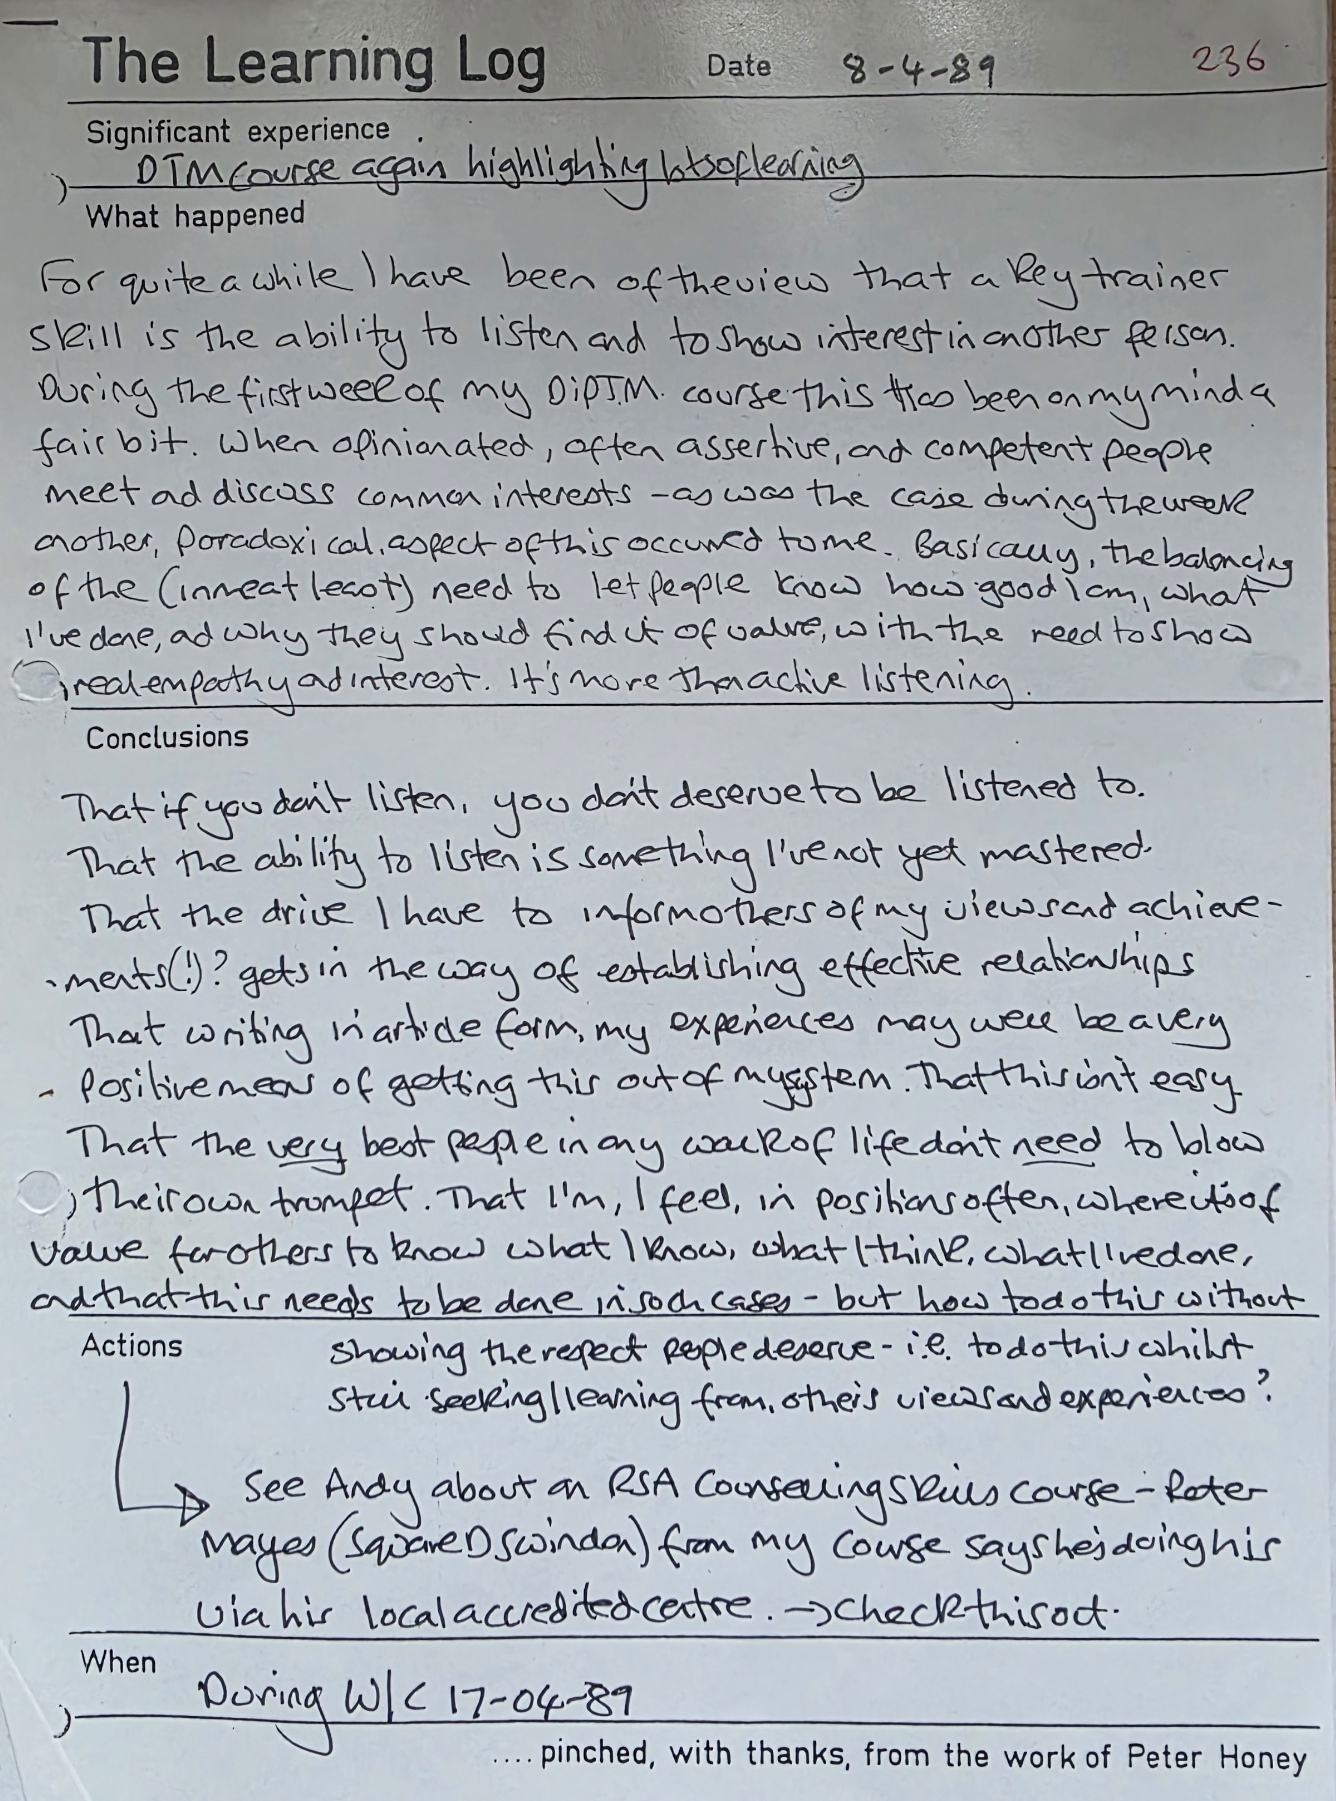 The Learning Log Date 8-4-89 236
Significant experience
DTM course again highlighting lots of learning
What happened
For quite a while I have been of the view that a key trainer
skill is the ability to listen and to show interest in another person.
During the first week of my DipT.M. course this has been on my mind a
fair bit. When opinionated, often assertive, and competent people
meet ad discuss common interests - as was the case during the week
another, paradoxical, aspect of this occurred to me. Basically, the balancing
of the (in me at least) need to let people know how good I am, what
I've done, ad why they should find it of value, with the need to show
real empathy ad interest. It's more than active listening.
Conclusions
That if you don't listen, you don't deserve to be listened to.
That the ability to listen is something I've not yet mastered.
That the drive I have to inform others of my views and achieve-
-ments(!)? gets in the way of establishing effective relationships
That writing in article form, my experiences may well be a very
positive means of getting this out of my system. That this isn't easy
That the very best people in any walk of life don't need to blow
their own trumpet. That I'm, I feel, in positions often, where it is of
value for others to know what I know, what I think, what I've done,
and that this needs to be done in such cases - but how to do this without
Actions showing the respect people deserve - i.e. to do this whilst
still seeking/learning from, others views and experiences?
See Andy about an RSA Counselling Skills course - Peter
Mayes (Square D Swindon) from my course says he's doing his
via his local accredited centre. → check this out.
When
During W/C 17-04-89
.... pinched, with thanks, from the work of Peter Honey